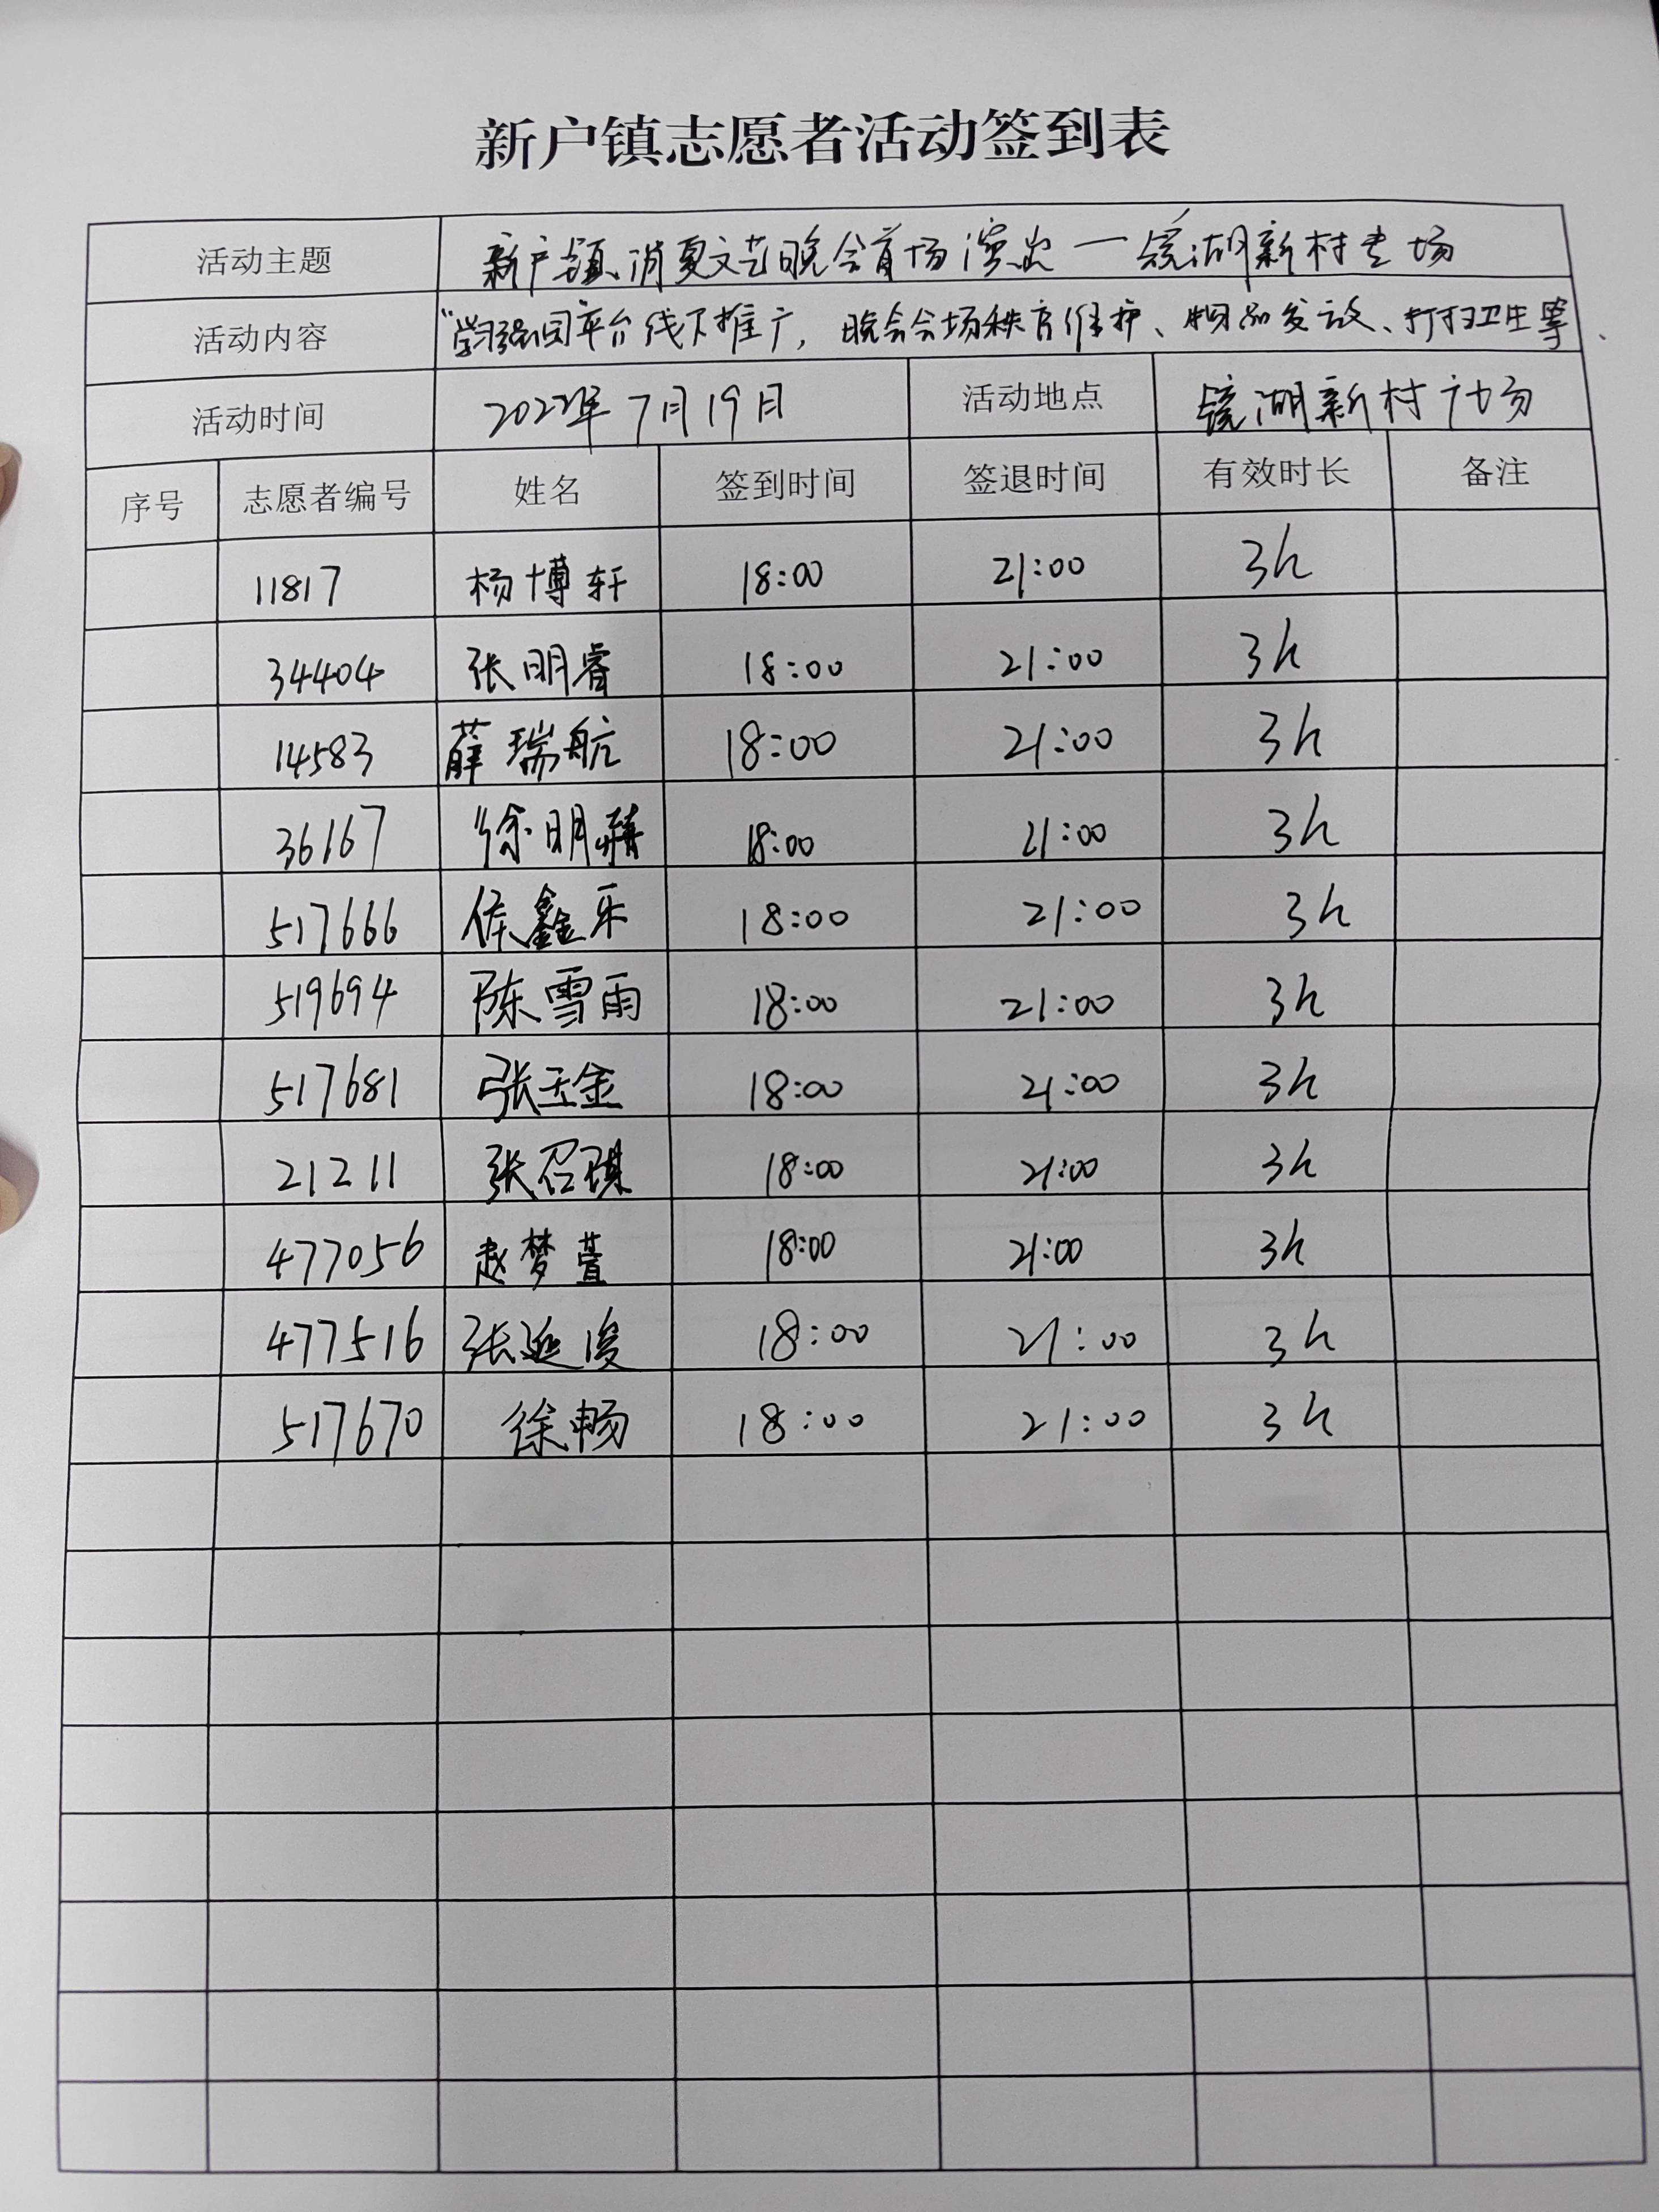 新户镇志愿者活动签到表
活动主题 新户镇消夏文艺晚会首场演出一镜湖新村专场
活动内容 “学习强国平台线下推广，晚会会场秩序维护、物品发放、打扫卫生等
活动时间 2022年7月19日 活动地点 镜湖新村广场
序号 志愿者编号 姓名 签到时间 签退时间 有效时长 备注
11817 杨博轩 18:00 21:00 3h
34404 张明睿 18:00 21:00 3h
14583 薛瑞航 18:00 21:00 3h
36167 徐明 18:00 21:00 3h
517666 侯鑫乐 18:00 21:00 3h
519694 陈雪雨 18:00 21:00 3h
517681 张玉金 18:00 21:00 3h
21211 张召琪 18:00 21:00 3h
477056 赵梦萱 18:00 21:00 3h
477516 张延俊 18:00 21:00 3h
517670 徐畅 18:00 21:00 3h